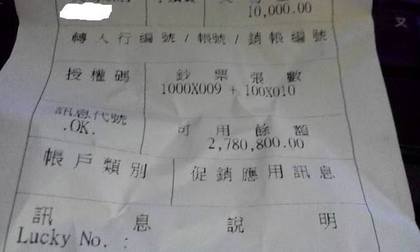 10,000.00
轉入行編號/帳號/銷帳編號
授權碼 鈔票張數
1000X009 + 100X010
訊息代號 可用餘額
.OK. 2,780,800.00
帳戶類別 促銷應用訊息
訊息說明
Lucky No. :